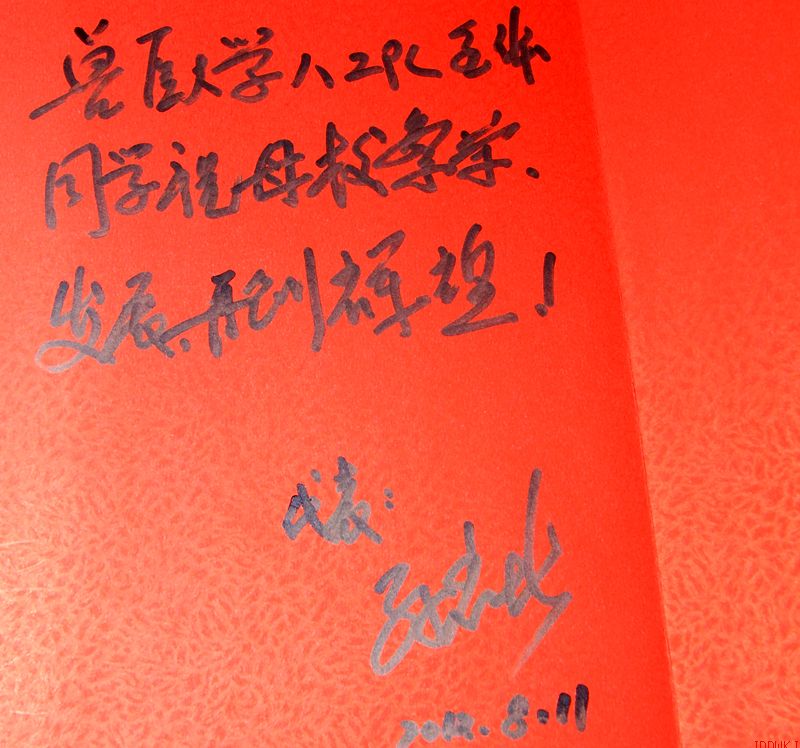 兽医大学八二级全体
同学祝母校繁荣.
发展,再创辉煌!
代表:
2012.8.11